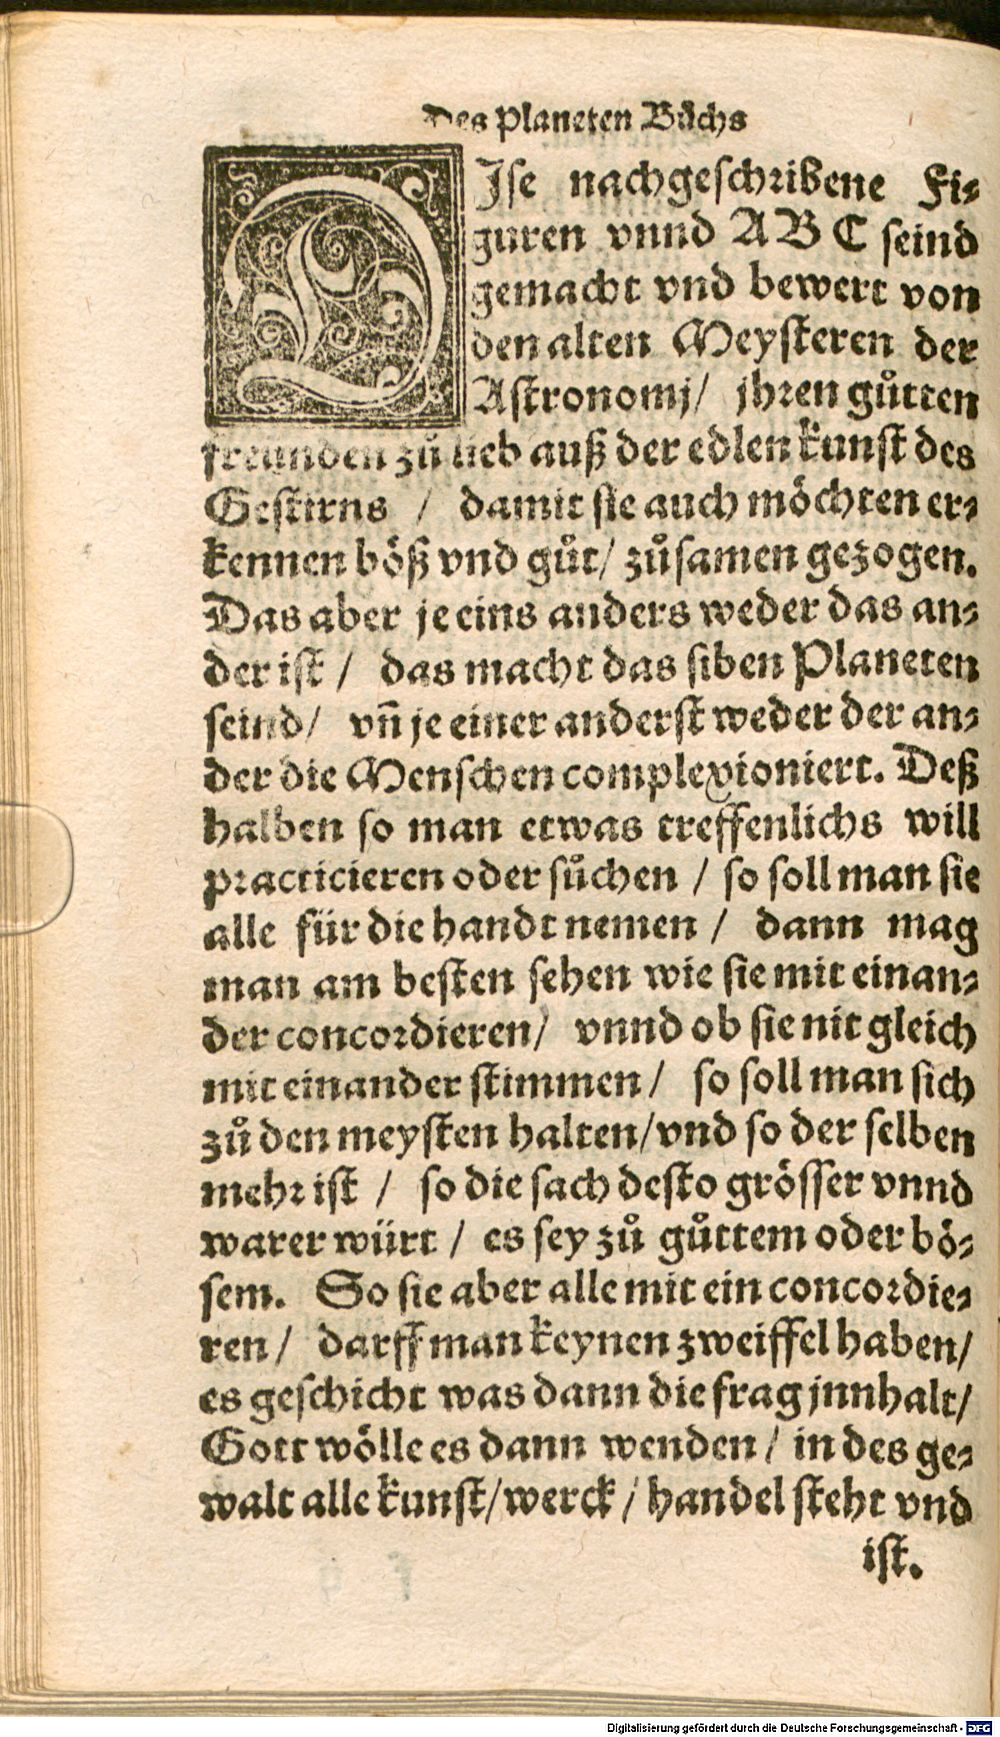 Des Planeten Bůchs
DIse nachgeschribene Fi-
guren vnnd A B C seind
gemacht vnd bewert von
den alten Meysteren der
Astronomj/ jhren gůtten
freunden zů lieb auß der edlen kunst des
Gestirns / damit sie auch möchten er-
kennen böß vnd gůt/ zůsamen gezogen.
Das aber je eins anders weder das an-
der ist / das macht das siben Planeten
seind/ vñ je einer anderst weder der an-
der die Menschen complexioniert. Deß
halben so man etwas treffenlichs will
practicieren oder sůchen / so soll man sie
alle für die handt nemen / dann mag
man am besten sehen wie sie mit einan-
der concordieren/ vnnd ob sie nit gleich
mit einander stimmen/ so soll man sich
zů den meysten halten/vnd so der selben
mehr ist / so die sach desto grösser vnnd
warer würt / es sey zů gůttem oder bö-
sem. So sie aber alle mit ein concordie-
ren/ darff man keynen zweiffel haben/
es geschicht was dann die frag jnnhalt/
Gott wölle es dann wenden/ in des ge-
walt alle kunst/werck/handel steht vnd
ist.
Digitalisierung gefördert durch die Deutsche Forschungsgemeinschaft - DFG